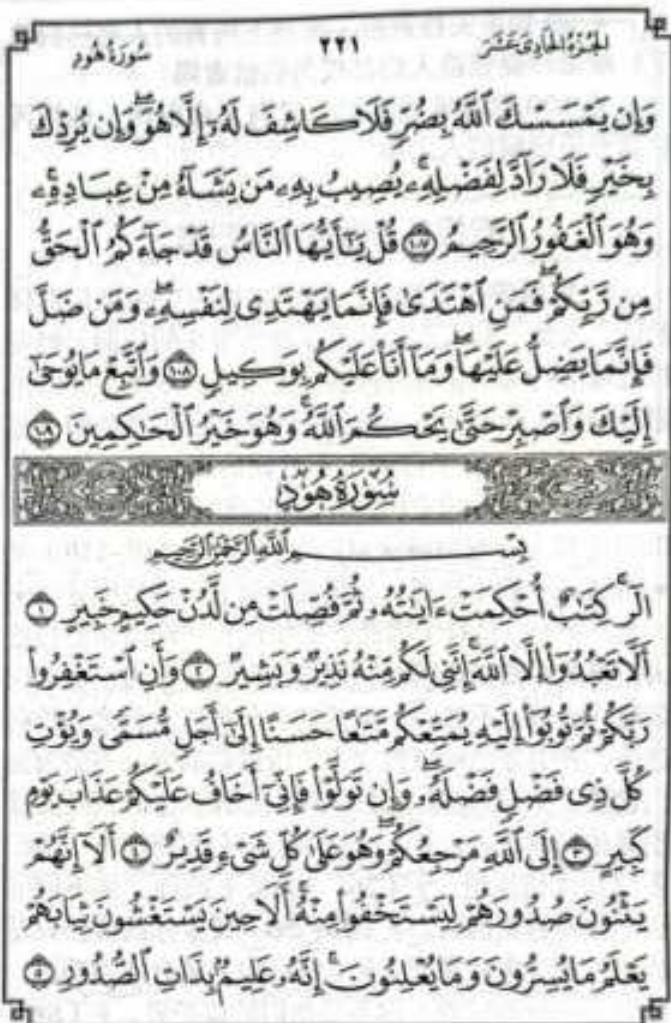 الجزء الحادي عشر ٢٢١ سورة هود
وَإِن يَمْسَسْكَ ٱللَّهُ بِضُرٍّ فَلَا كَاشِفَ لَهُۥٓ إِلَّا هُوَۖ وَإِن يُرِدْكَ
بِخَيْرٍ فَلَا رَآدَّ لِفَضْلِهِۦۚ يُصِيبُ بِهِۦ مَن يَشَآءُ مِنْ عِبَادِهِۦۚ
وَهُوَ ٱلْغَفُورُ ٱلرَّحِيمُ ١٠٧ قُلْ يَٰٓأَيُّهَا ٱلنَّاسُ قَدْ جَآءَكُمُ ٱلْحَقُّ
مِن رَّبِّكُمْۖ فَمَنِ ٱهْتَدَىٰ فَإِنَّمَا يَهْتَدِى لِنَفْسِهِۦۖ وَمَن ضَلَّ
فَإِنَّمَا يَضِلُّ عَلَيْهَاۖ وَمَآ أَنَا۠ عَلَيْكُم بِوَكِيلٍ ١٠٨ وَٱتَّبِعْ مَا يُوحَىٰٓ
إِلَيْكَ وَٱصْبِرْ حَتَّىٰ يَحْكُمَ ٱللَّهُۚ وَهُوَ خَيْرُ ٱلْحَٰكِمِينَ ١٠٩
سُورَةُ هُودٍ
بِسْمِ ٱللَّهِ ٱلرَّحْمَٰنِ ٱلرَّحِيمِ
الٓرۚ كِتَٰبٌ أُحْكِمَتْ ءَايَٰتُهُۥ ثُمَّ فُصِّلَتْ مِن لَّدُنْ حَكِيمٍ خَبِيرٍ ١
أَلَّا تَعْبُدُوٓا۟ إِلَّا ٱللَّهَۚ إِنَّنِى لَكُم مِّنْهُ نَذِيرٌ وَبَشِيرٌ ٢ وَأَنِ ٱسْتَغْفِرُوا۟
رَبَّكُمْ ثُمَّ تُوبُوٓا۟ إِلَيْهِ يُمَتِّعْكُم مَّتَٰعًا حَسَنًا إِلَىٰٓ أَجَلٍ مُّسَمًّى وَيُؤْتِ
كُلَّ ذِى فَضْلٍ فَضْلَهُۥۖ وَإِن تَوَلَّوْا۟ فَإِنِّىٓ أَخَافُ عَلَيْكُمْ عَذَابَ يَوْمٍ
كَبِيرٍ ٣ إِلَى ٱللَّهِ مَرْجِعُكُمْۖ وَهُوَ عَلَىٰ كُلِّ شَىْءٍ قَدِيرٌ ٤ أَلَآ إِنَّهُمْ
يَثْنُونَ صُدُورَهُمْ لِيَسْتَخْفُوا۟ مِنْهُۚ أَلَا حِينَ يَسْتَغْشُونَ ثِيَابَهُمْ
يَعْلَمُ مَا يُسِرُّونَ وَمَا يُعْلِنُونَۚ إِنَّهُۥ عَلِيمٌۢ بِذَاتِ ٱلصُّدُورِ ٥